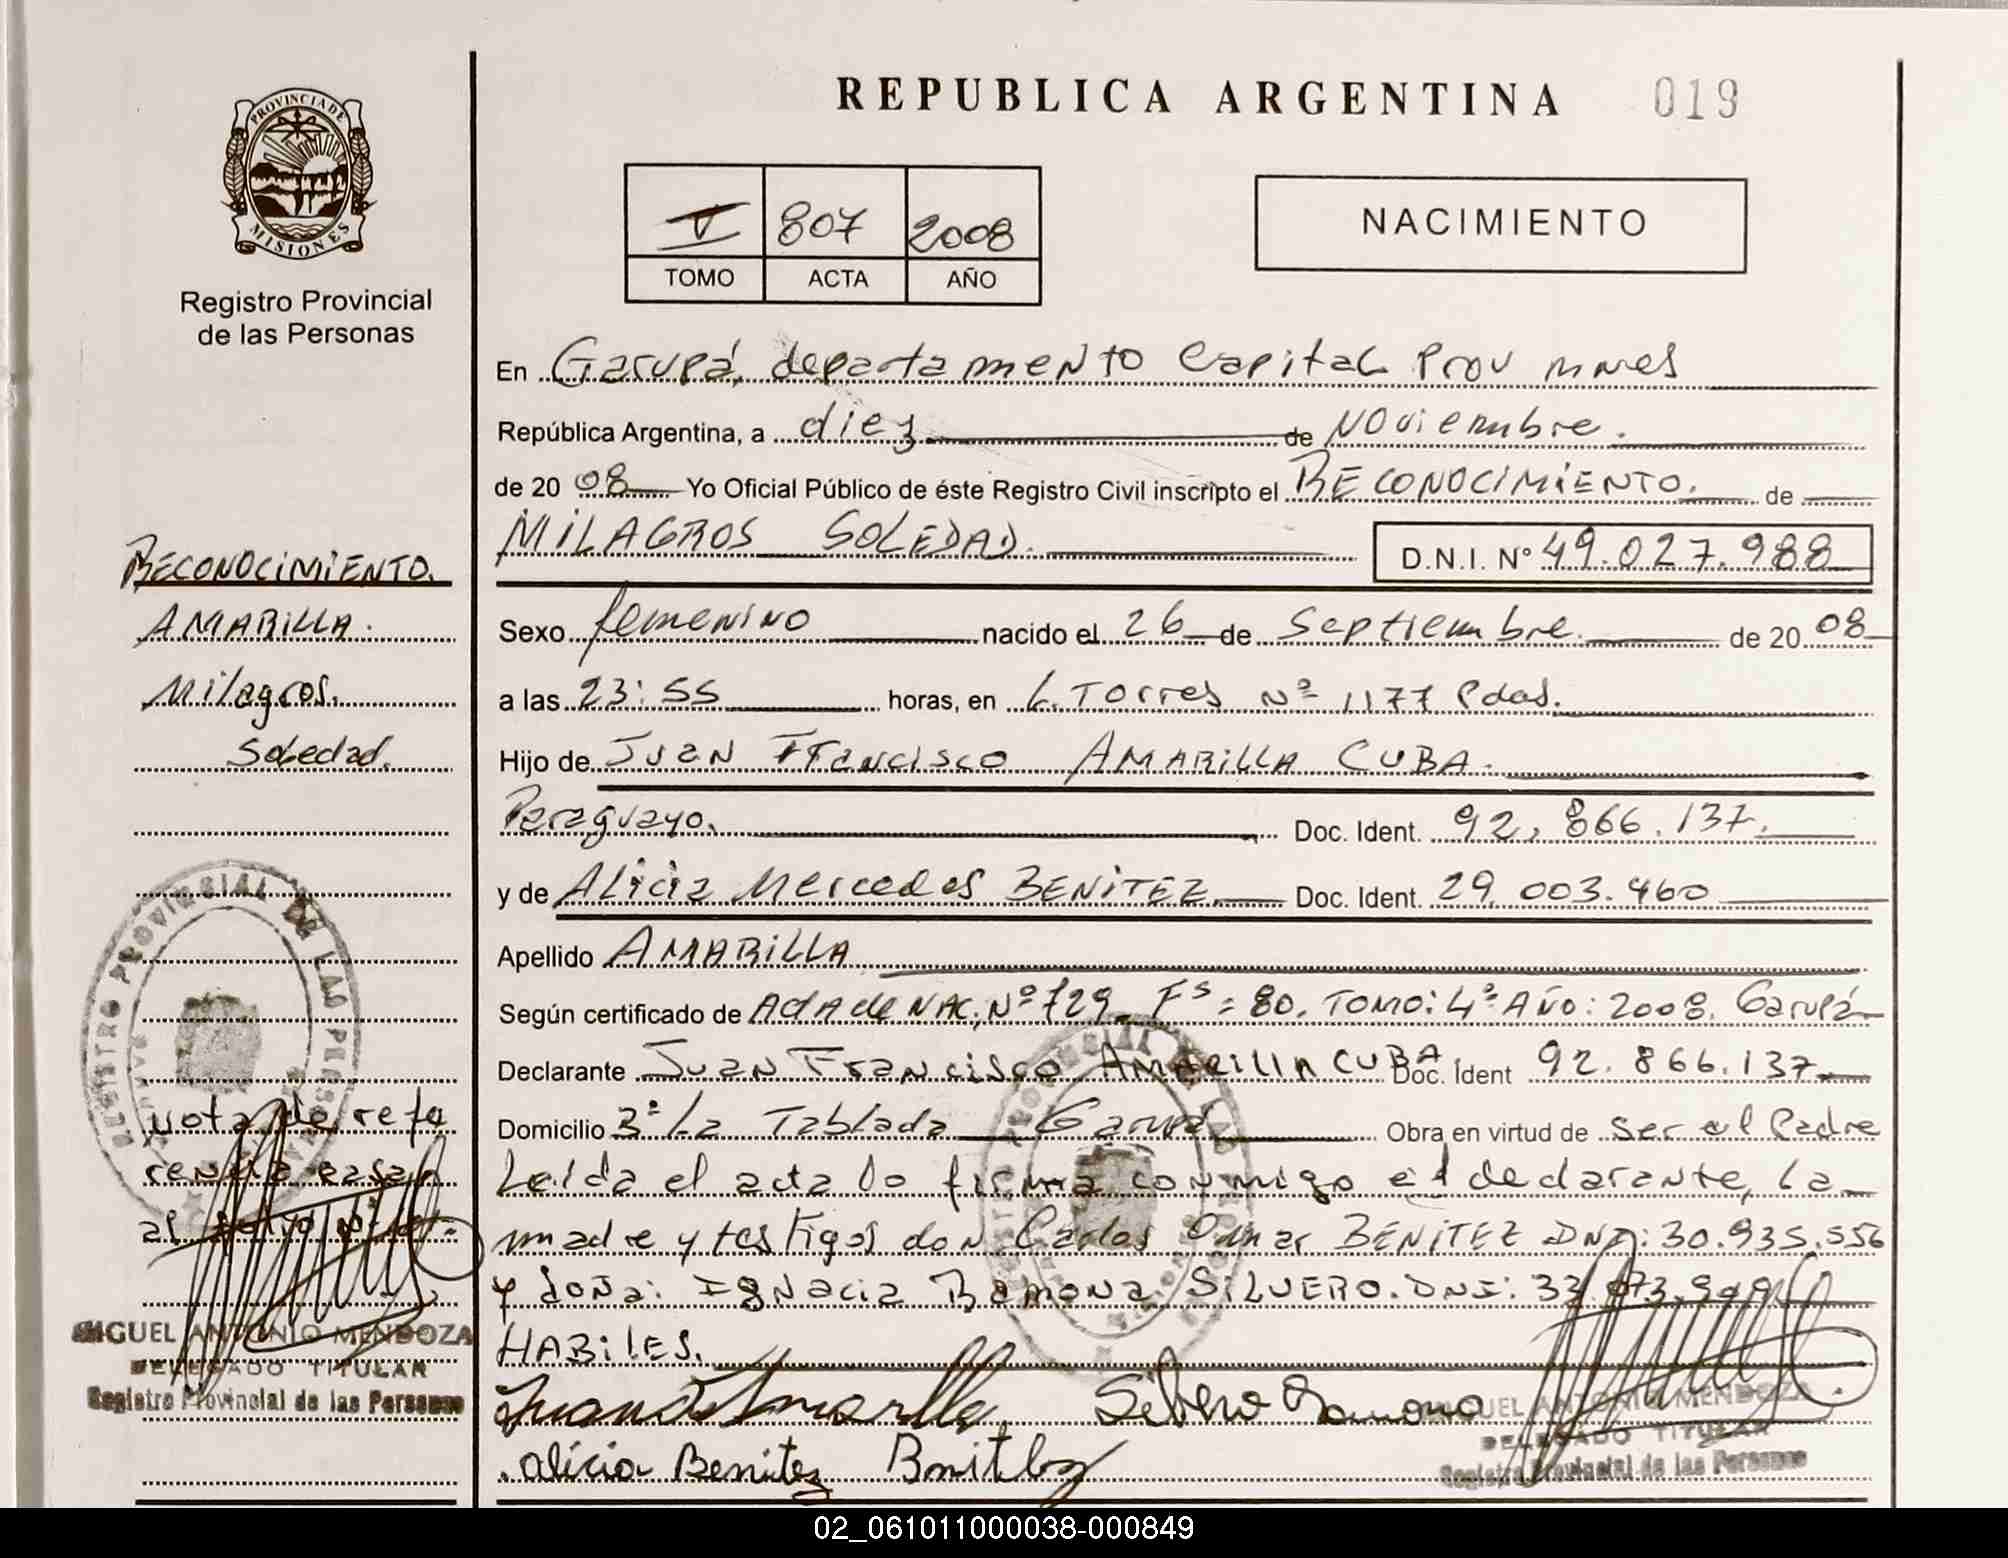 REPUBLICA ARGENTINA 019
PROVINCIA DE
MISIONES
Registro Provincial
de las Personas
V 807 2008
TOMO ACTA AÑO
NACIMIENTO
En Garupá, departamento Capital Prov mnes
República Argentina, a diez de Noviembre.
de 20 08 Yo Oficial Público de éste Registro Civil inscripto el RECONOCIMIENTO. de
MILAGROS SOLEDAD.
D.N.I. Nº 49.027.988
Sexo femenino nacido el 26 de Septiembre de 20 08
a las 23:55 horas, en L. Torres Nº 1177 Pdas.
Hijo de Juan Francisco AMARILLA CUBA.
Paraguayo. Doc. Ident. 92.866.137.
y de Alicia Mercedes BENITEZ Doc. Ident. 29.003.460
Apellido AMARILLA
Según certificado de Acta de NAC. Nº 729 Fs = 80. TOMO: 4º AÑO: 2008. Garupá
Declarante Juan Francisco AMARILLA CUBA Doc. Ident 92.866.137
Domicilio Bº La Tablada Garupá Obra en virtud de ser el Padre
Leida el acta lo firma conmigo el declarante, la
madre y testigos don Carlos Omar BENITEZ DNI: 30.935.556
y doña: Ignacia Ramona SILVERO. DNI:
HABILES.
Silvero Ramona
alicia Benitez
MIGUEL ANTONIO MENDOZA
DELEGADO TITULAR
Registro Provincial de las Personas
RECONOCIMIENTO.
AMARILLA.
Milagros.
Soledad.
REGISTRO PROVINCIAL DE LAS PERSONAS
Nota de refe
rencia pasar
al
MIGUEL ANTONIO MENDOZA
DELEGADO TITULAR
Registro Provincial de las Personas
02_061011000038-000849